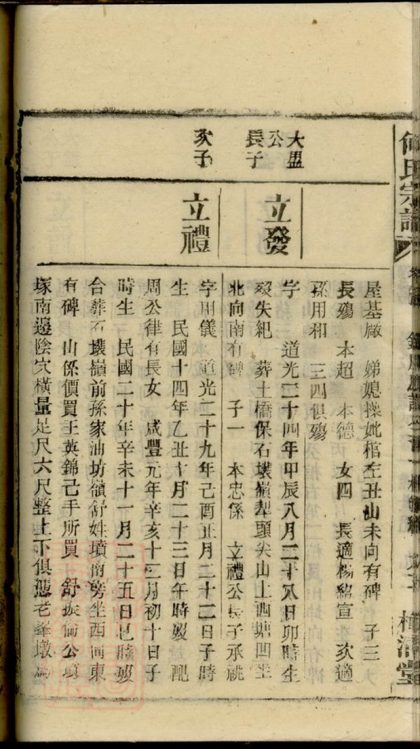 何氏宗譜
屋基厰 娣媳操妣棺坐丑山未向有碑 子三
長殤 本超 本德 女四 長適楊紹宣 次適
孫用和 三四俱殤
大盟公長子
立發
字 道光二十四年甲辰八月二十八日卯時生
歿失紀 葬土橋保石壋嶺犂頭尖山上西塘四坐
北向南有碑 子一 本忠係 立禮公長子承祧
次子
立禮
字用儀 道光二十九年己酉正月二十二日子時
生 民國十四年乙丑十月二十三日午時歿 配
周公律有長女 咸豐元年辛亥十二月初十日子
時生 民國二十年辛未十一月二十五日巳時歿
合葬石壋嶺前孫家油坊嶺舒姓墳南旁坐西向東
有碑 山係價買王英錦己手所買 舒振 公墳
塚南邊陰穴橫量足尺六尺整上下俱憑老 墩為